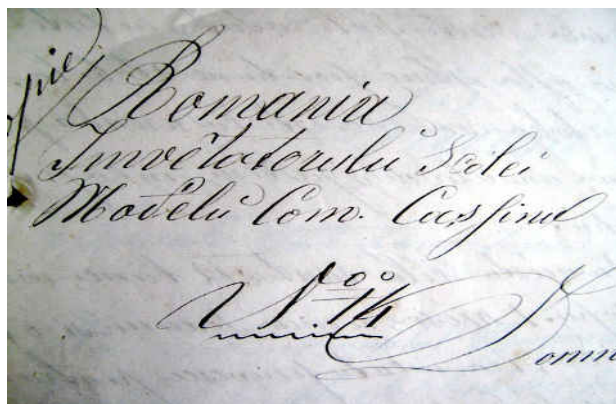 pie
Romania
Invêtatorulŭ Scólei
Modelŭ Com. Cașinu
No. 14
Domn